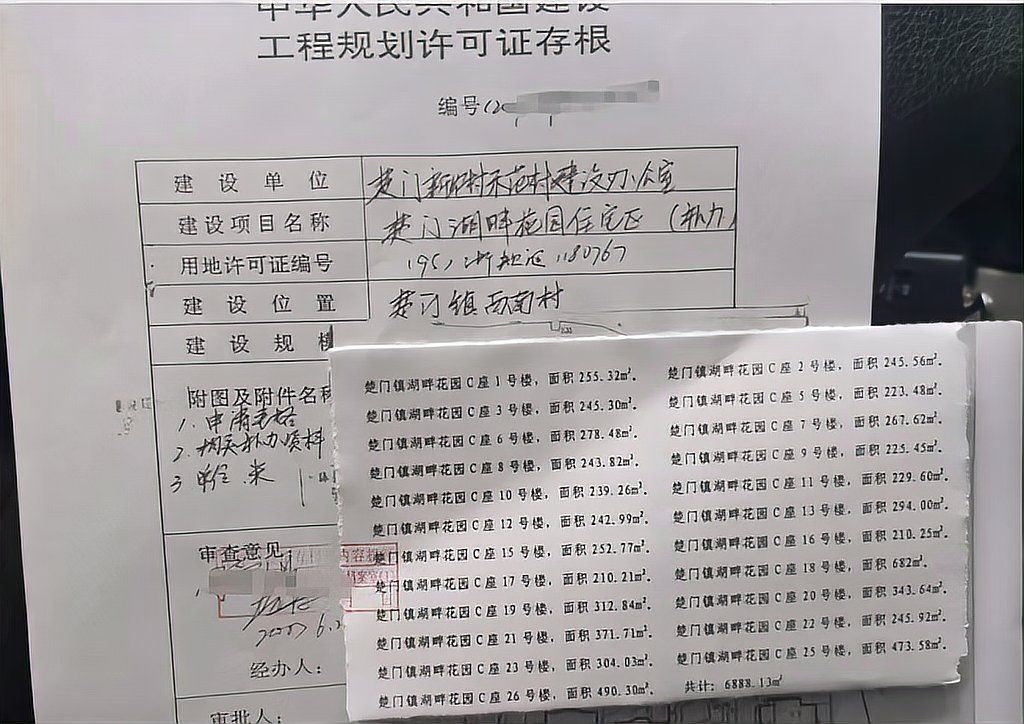 中华人民共和国建设
工程规划许可证存根
编号(20
建设单位 楚门新农村示范村建设办公室
建设项目名称 楚门湖畔花园住宅区(补办)
用地许可证编号 (95)浙规证1180767
建设位置 楚门镇西南村
建设规模
附图及附件名称
1. 申请表格
2. 相关补办资料
3
审查意见:
内容
档案室
2007.6.2
经办人:
审批人:
楚门镇湖畔花园C座1号楼,面积255.32㎡. 楚门镇湖畔花园C座2号楼,面积245.56㎡.
楚门镇湖畔花园C座3号楼,面积245.30㎡. 楚门镇湖畔花园C座5号楼,面积223.48㎡.
楚门镇湖畔花园C座6号楼,面积278.48㎡. 楚门镇湖畔花园C座7号楼,面积267.62㎡.
楚门镇湖畔花园C座8号楼,面积243.82㎡. 楚门镇湖畔花园C座9号楼,面积225.45㎡.
楚门镇湖畔花园C座10号楼,面积239.26㎡. 楚门镇湖畔花园C座11号楼,面积229.60㎡.
楚门镇湖畔花园C座12号楼,面积242.99㎡. 楚门镇湖畔花园C座13号楼,面积294.00㎡.
楚门镇湖畔花园C座15号楼,面积252.77㎡. 楚门镇湖畔花园C座16号楼,面积210.25㎡.
楚门镇湖畔花园C座17号楼,面积210.21㎡. 楚门镇湖畔花园C座18号楼,面积682㎡.
楚门镇湖畔花园C座19号楼,面积312.84㎡. 楚门镇湖畔花园C座20号楼,面积343.64㎡.
楚门镇湖畔花园C座21号楼,面积371.71㎡. 楚门镇湖畔花园C座22号楼,面积245.92㎡.
楚门镇湖畔花园C座23号楼,面积304.03㎡. 楚门镇湖畔花园C座25号楼,面积473.58㎡.
楚门镇湖畔花园C座26号楼,面积490.30㎡. 共计:6888.13㎡